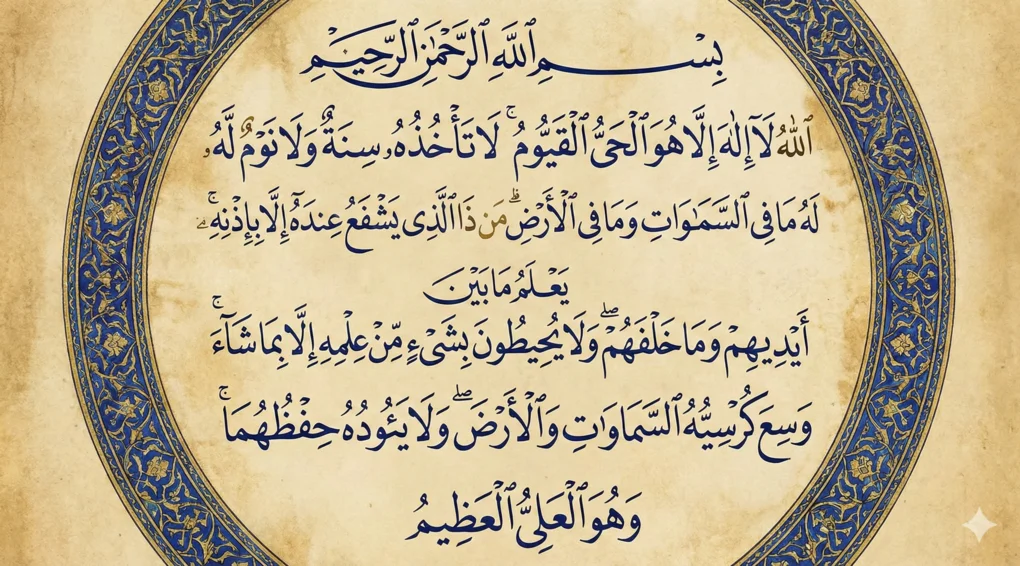 بِسْمِ ٱللَّهِ ٱلرَّحْمَٰنِ ٱلرَّحِيمِ
ٱللَّهُ لَآ إِلَٰهَ إِلَّا هُوَ ٱلْحَىُّ ٱلْقَيُّومُ ۚ لَا تَأْخُذُهُۥ سِنَةٌ وَلَا نَوْمٌ لَّهُۥ
لَهُ مَا فِى ٱلسَّمَٰوَاتِ وَمَا فِى ٱلْأَرْضِ ۗ مَن ذَا ٱلَّذِى يَشْفَعُ عِندَهُ إِلَّا بِإِذْنِهِ ۚ
يَعْلَمُ مَا بَيْنَ
أَيْدِيهِمْ وَمَا خَلْفَهُمْ ۖ وَلَا يُحِيطُونَ بِشَىْءٍ مِّنْ عِلْمِهِ إِلَّا بِمَا شَآءَ ۚ
وَسِعَ كُرْسِيُّهُ ٱلسَّمَاوَاتِ وَٱلْأَرْضَ ۖ وَلَا يَـُٔودُهُ حِفْظُهُمَا ۚ
وَهُوَ ٱلْعَلِىُّ ٱلْعَظِيمُ